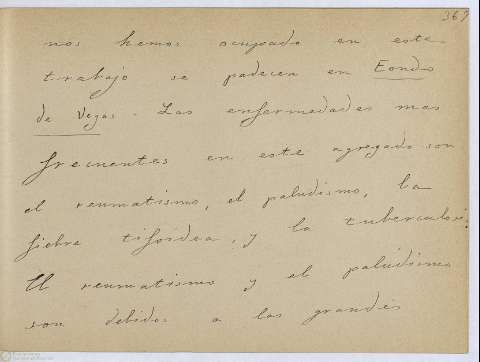 367
nos hemos ocupado en este
trabajo se padecen en Eondo
de Vegas. Las enfermedades mas
frecuentes en este agregado son
el reumatismo, el paludismo, la
fiebre tifoidea, y la tuberculosis.
El reumatismo y el paludismo
son debidos a las grandes